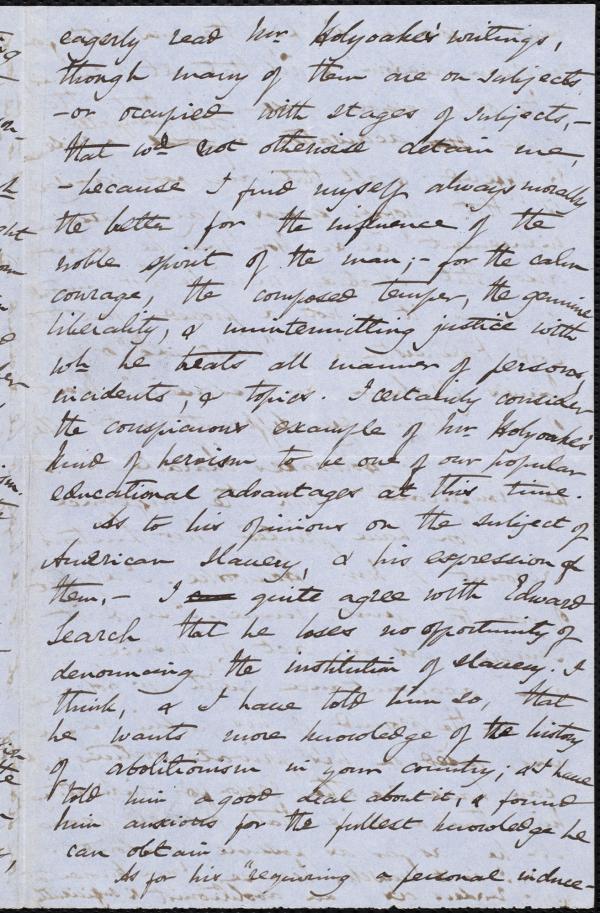 eagerly read Mr. Holyoake's writings,
though many of them are on subjects
- or occupied with stages of subjects, -
that wd. not otherwise detain me,
- because I find myself always morally
the better for the influence of the
noble spirit of the man; - for the calm
courage, the composed temper, the genuine
liberality, & unintermitting justice with
wh. he treats all manner of persons,
incidents, & topics. I certainly consider
the conspicuous example of Mr. Holyoake's
kind of heroism to be one of our popular
educational advantages at this time.
As to his opinions on the subject of
American slavery, & his expression of
them, - I quite agree with Edward
Search that he loses no opportunity of
denouncing the institution of slavery. I
think, & I have told him so, that
he wants more knowledge of the history
of abolitionism in your country; & I have
told him a good deal about it, & found
him anxious for the fullest knowledge he
can obtain
As for his "requiring a personal induce-